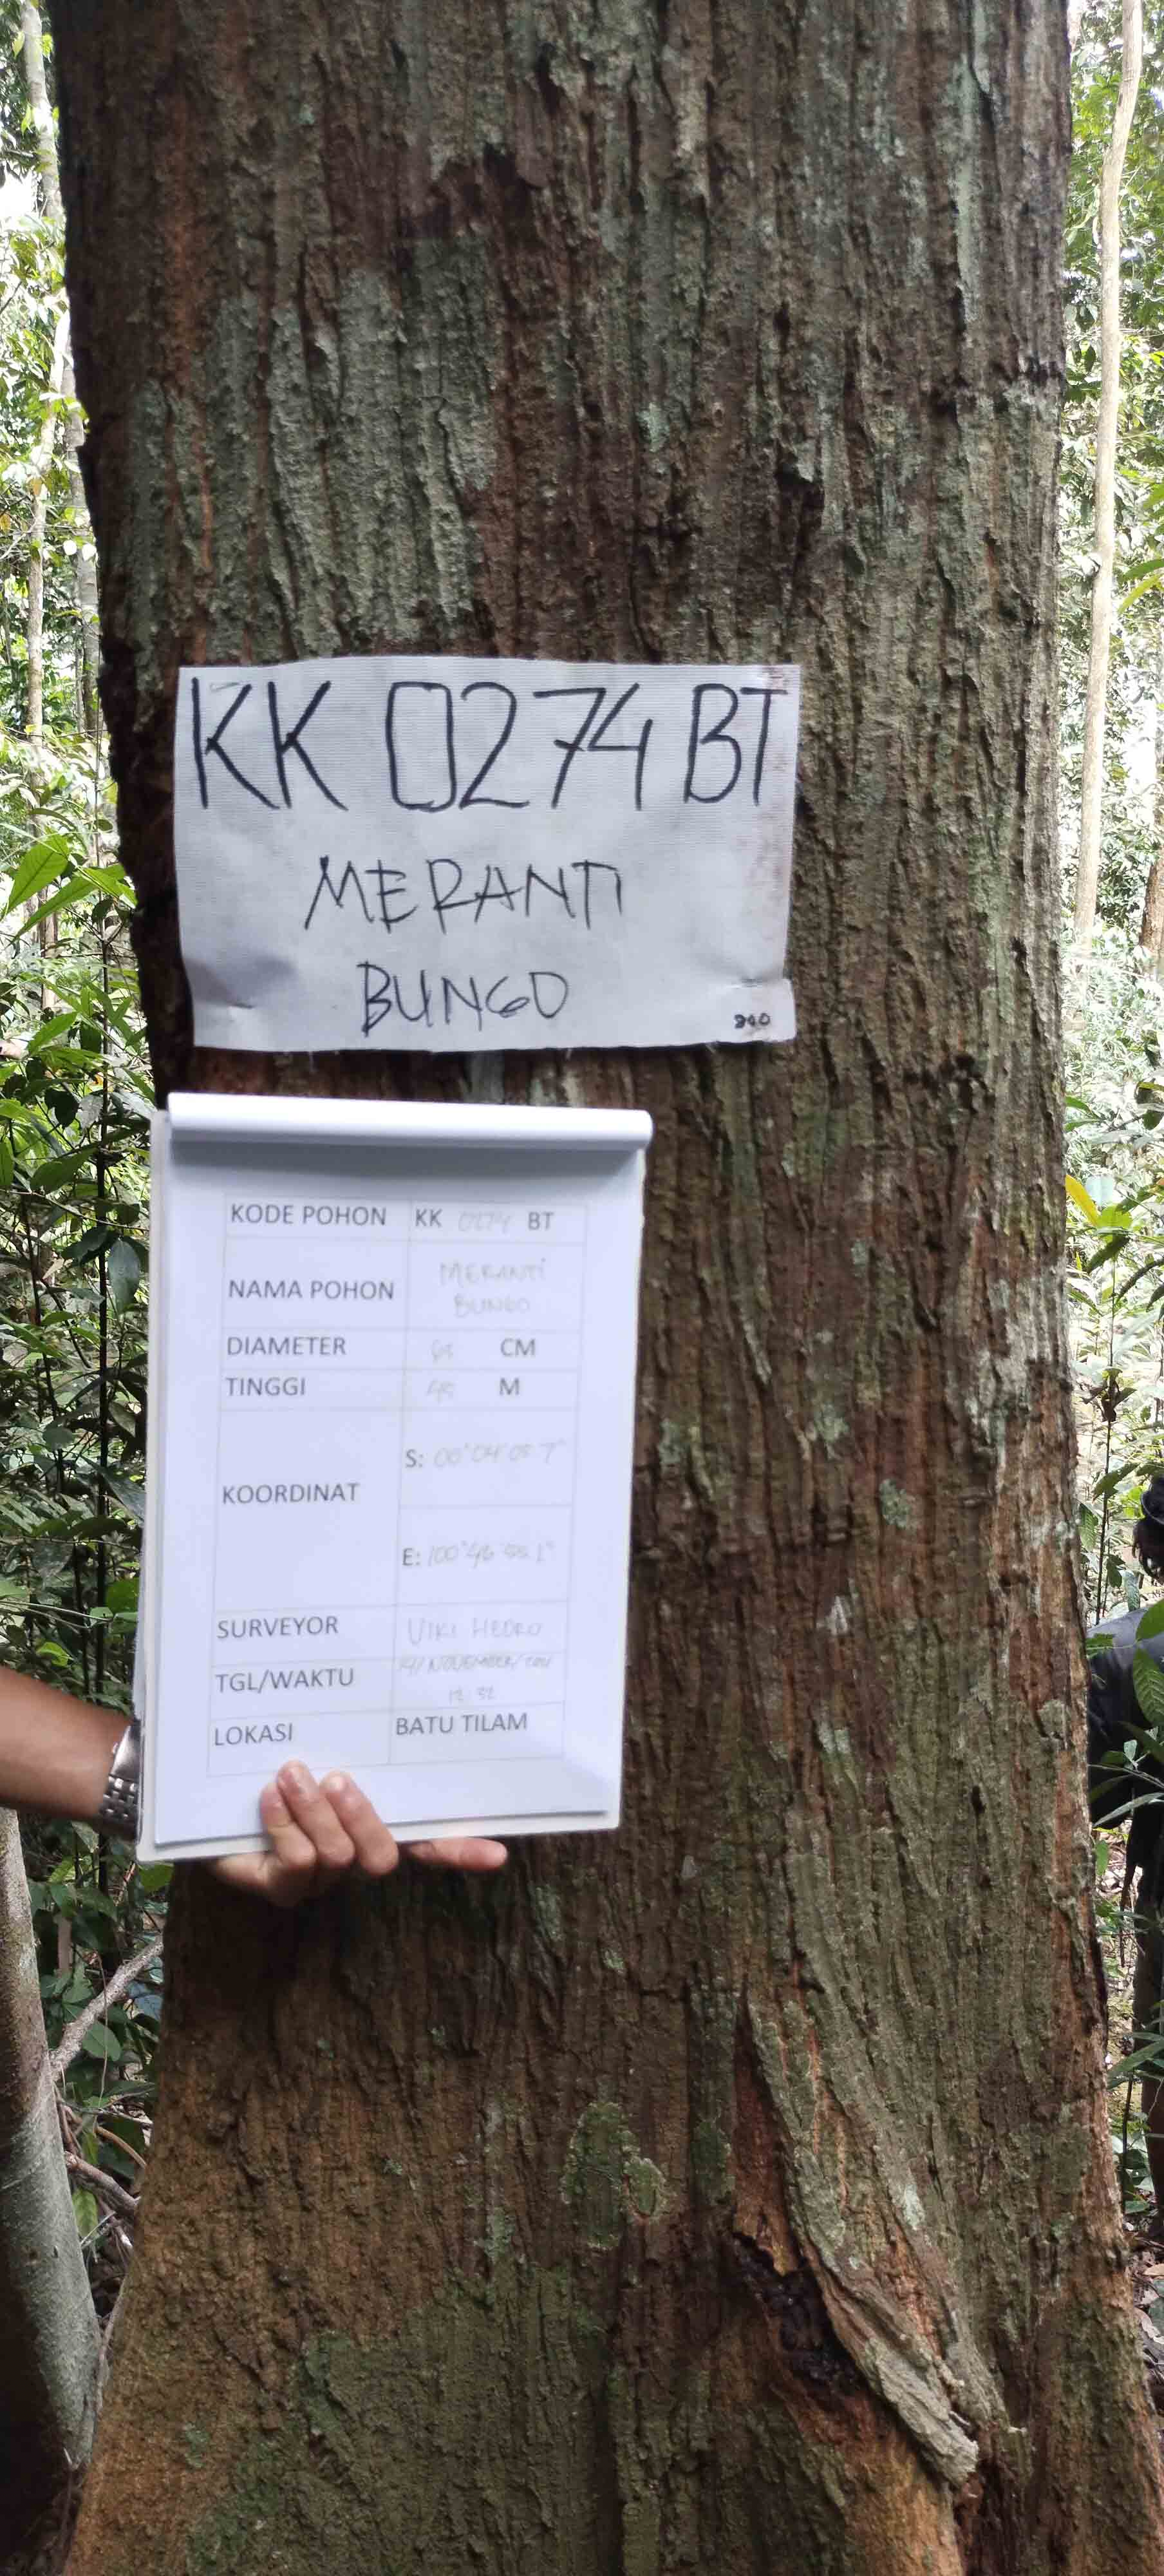 KK 0274 BT
MERANTI
BUNGO
240
KODE POHON KK 0274 BT
NAMA POHON MERANTI
BUNGO
DIAMETER CM
TINGGI M
KOORDINAT
S: 00°04'05.7"
E: 100°46'55.1"
SURVEYOR VIKI HEDRO
TGL/WAKTU 14/NOVEMBER/
12:32
LOKASI BATU TILAM